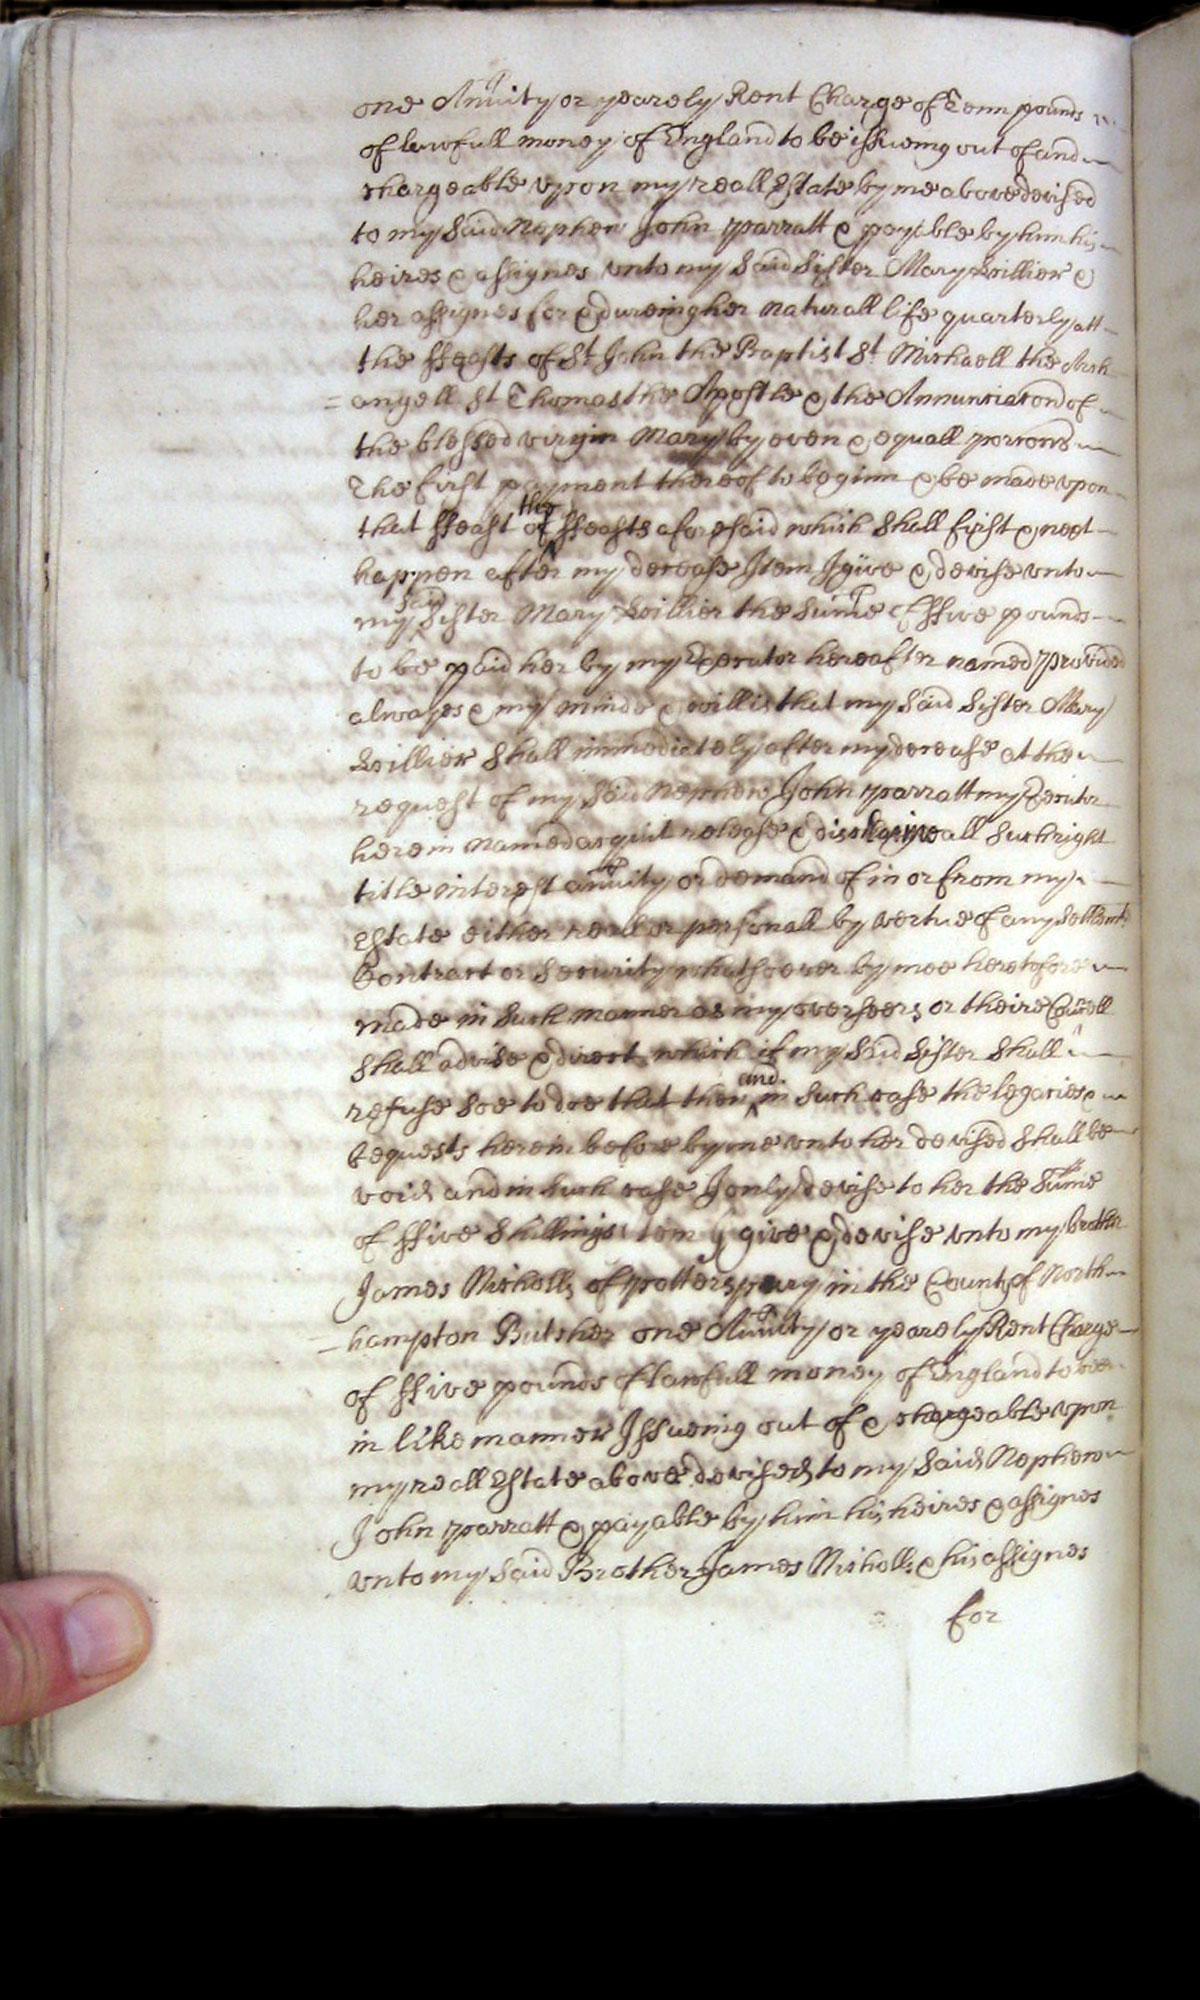 one Annuity or yearely Rent Charge of Tenn pounds
of lawfull money of England to be issueing out of and
chargeable vpon my reall Estate by me above devised
to my Said Nephew John Parratt & payable by him his
heires & assignes vnto my Said Sister Mary Willier &
her assignes for & dureing her naturall life quarterly att
the ffeasts of St John the Baptist St Michaell the Arch
= angell St Thomas the Apostle & the Annunciacon of
the blessed virgin Mary by even & equall porcons
The first payment thereof to beginn & be made vpon
that ffeast of the ffeasts aforesaid which Shall first & next
happen after my decease Item I give & devise vnto
my said Sister Mary Willier the Sume of ffive pounds
to be paid her by my Executor hereafter named Provided
alwayes & my minde & will is that my Said Sister Mary
Willier Shall immediately after my decease at the
request of my Said Nephew John Parratt my Executor
herein named acquit release & discharge all Such right
title interest annuity or demand of in or from my
Estate either reall or personall by vertue of any Settlemt
Contract or Security whatsoever by mee heretofore
made in Such manner as my overseers or theire Councell
Shall advise & direct which if my Said Sister Shall
refuse Soe to doe that then and in Such case the legacies &
bequests herein before by me vnto her devised Shall be
void and in Such case I only devise to her the Sume
of ffive Shillings Item I give & devise vnto my brother
James Nicholls of Potterspury in the County of North
= hampton Butcher one Annuity or yearely Rent Charge
of ffive pounds of lawfull money of England to bee
in like manner Issueing out of & chargeable vpon
my reall Estate above devised to my Said Nephew
John Parratt & payable by him his heires & assignes
vnto my Said Brother James Nicholls & his assignes
for